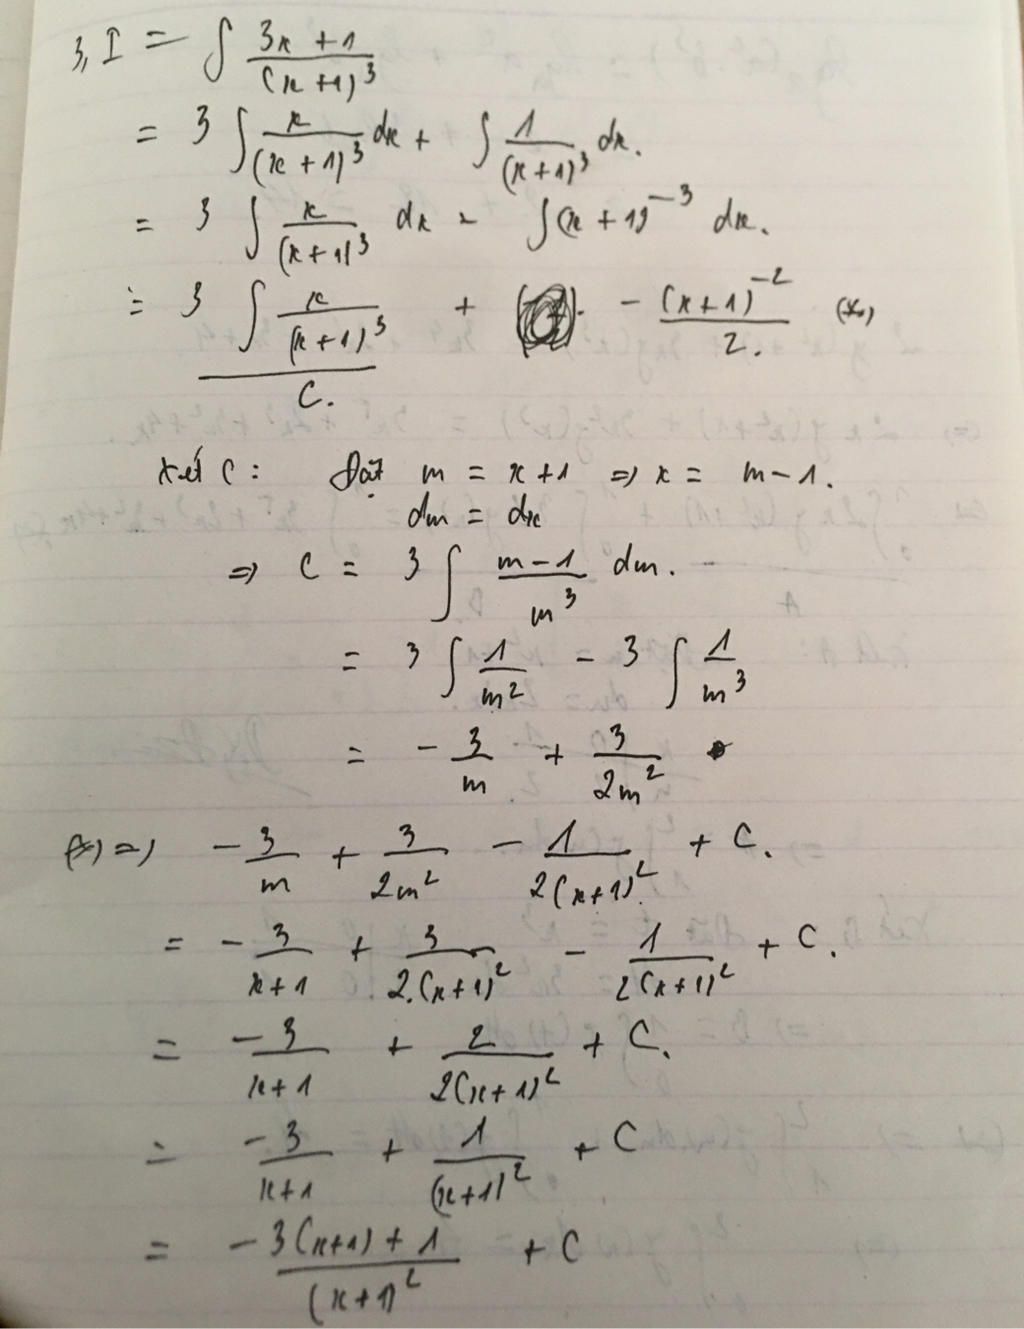 3, I = ∫ (3x + 1)/(x + 1)³
= 3 ∫ x/(x + 1)³ dx + ∫ 1/(x + 1)³ dx.
= 3 ∫ x/(x + 1)³ dx - ∫(x + 1)⁻³ dx.
= 3 ∫ x/(x + 1)³ + - (x + 1)⁻²/2. (*)
C.
Xét C: Đặt m = x + 1 => x = m - 1.
dm = dx
=> C = 3 ∫ (m - 1)/m³ dm.
= 3 ∫ 1/m² - 3 ∫ 1/m³
= - 3/m + 3/2m²
(*) => - 3/m + 3/2m² - 1/2(x + 1)² + C.
= - 3/x + 1 + 3/2.(x + 1)² - 1/2(x + 1)² + C.
= -3/x + 1 + 2/2(x + 1)² + C.
= -3/x + 1 + 1/(x + 1)² + C
= (-3(x + 1) + 1)/(x + 1)² + C